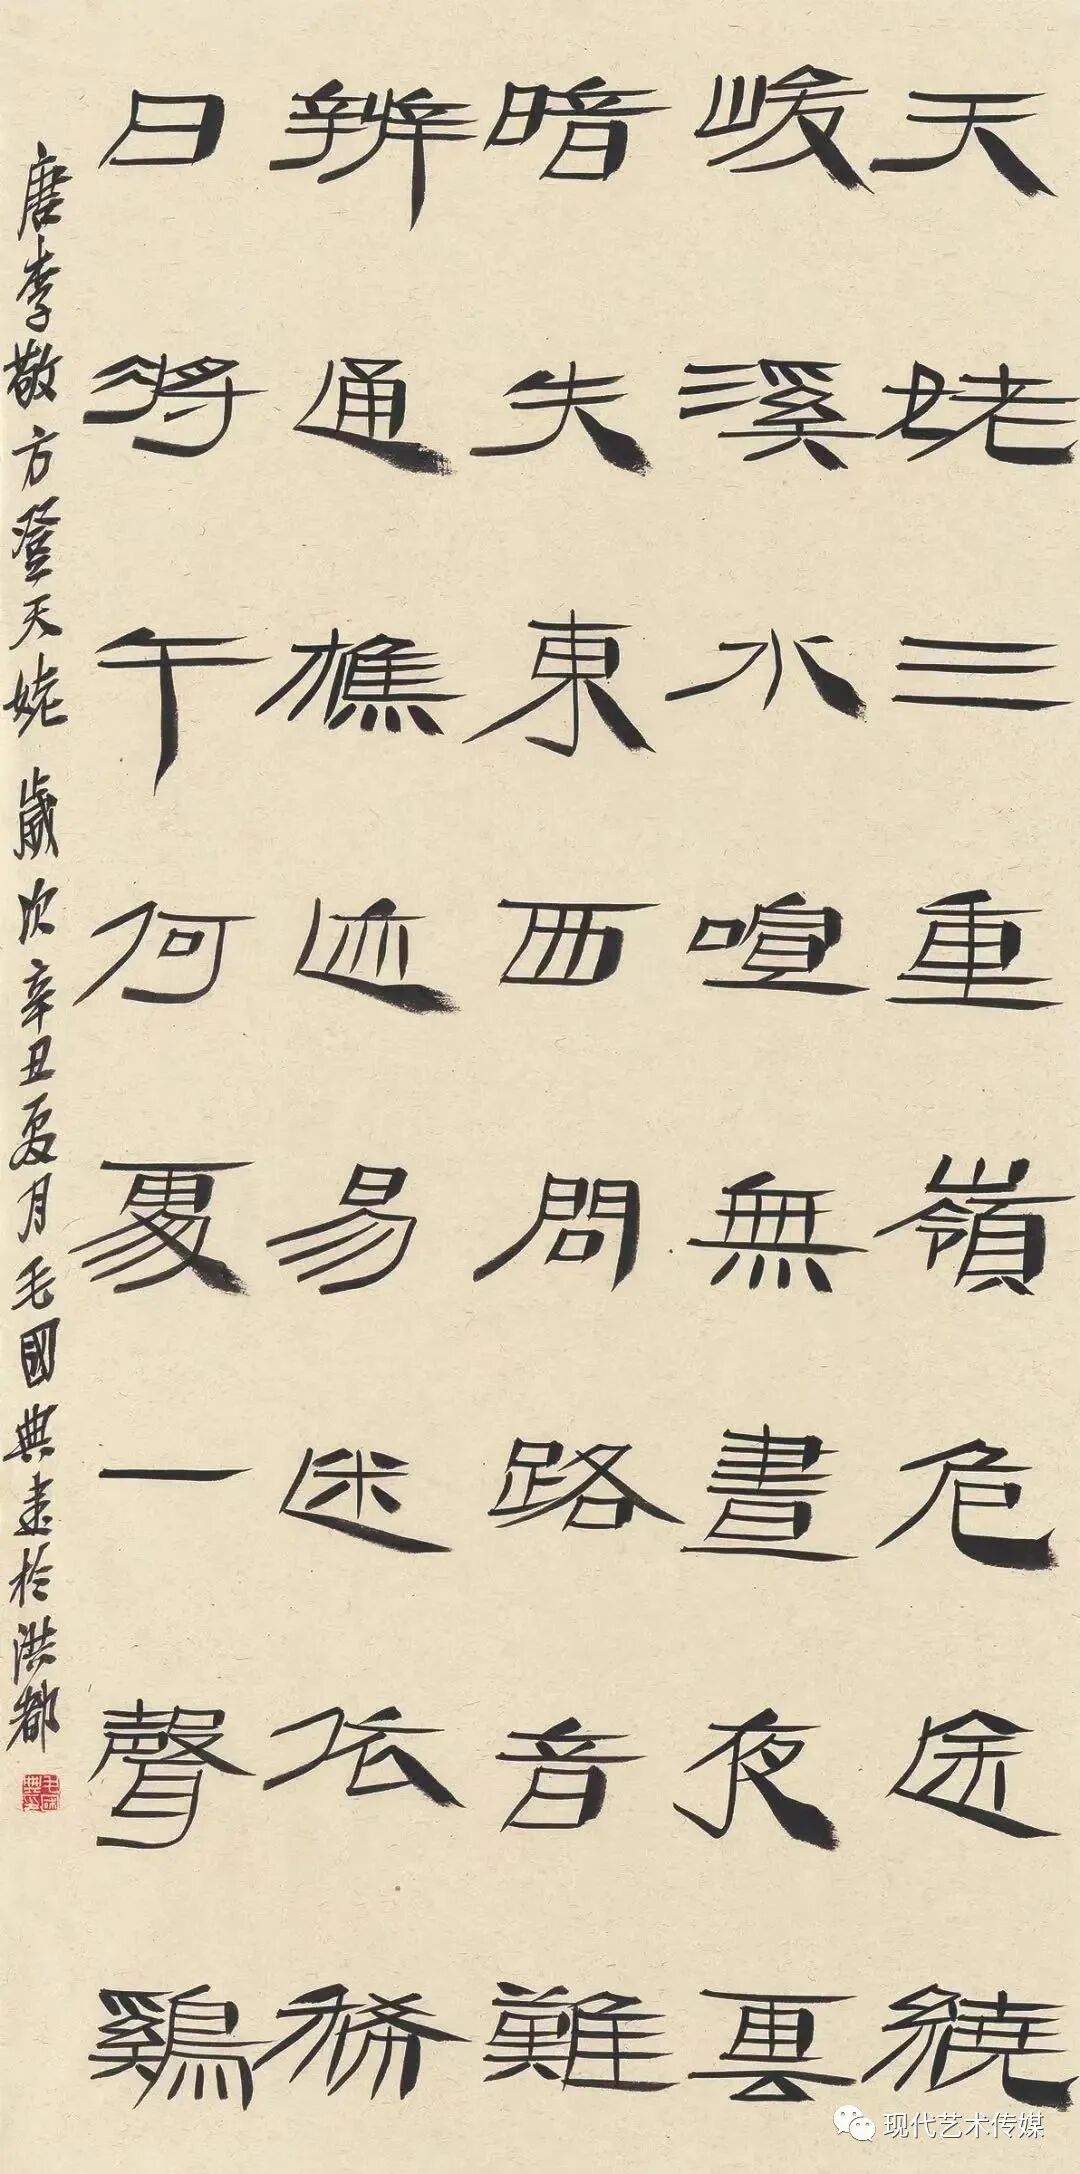 天姥三重嶺危途繞
峻溪水喧無晝夜雲
暗失東西問路音難
辨通樵迹易迷依稀
日將午何處一聲鷄
唐李敬方登天姥 歲次辛丑夏月毛國典書於洪都
现代艺术传媒